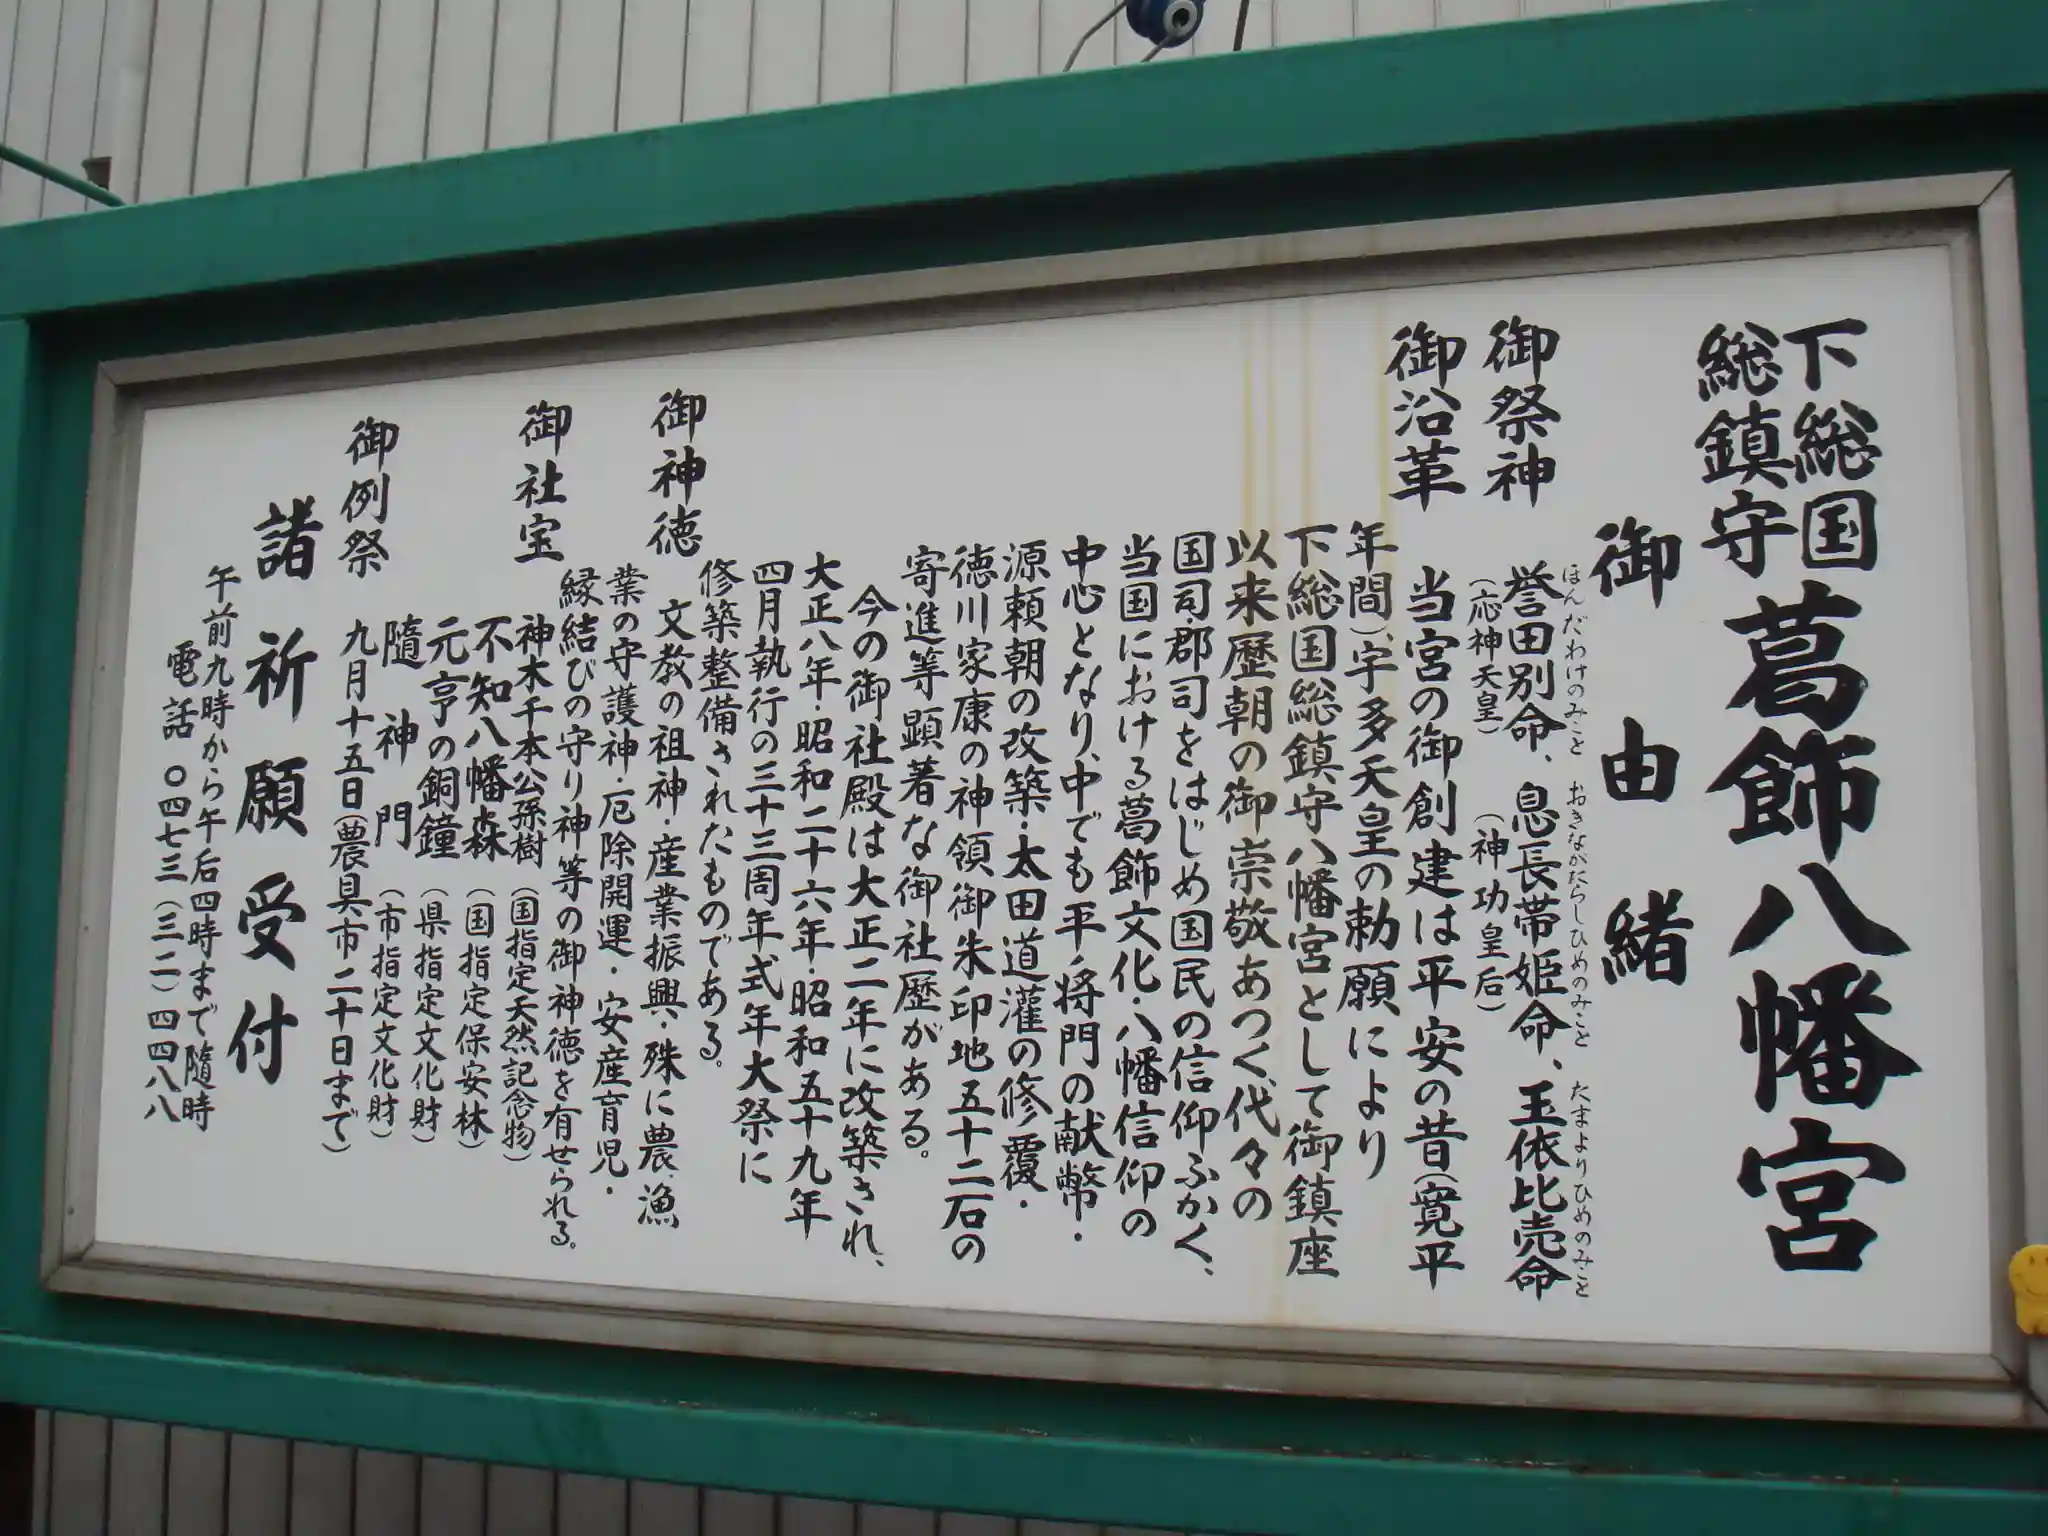 下総国
総鎮守
葛飾八幡宮
御由緒
御祭神
ほんだわけのみこと おきながたらしひめのみこと たまよりひめのみこと
誉田別命、息長帯姫命、玉依比売命
(応神天皇) (神功皇后)
御沿革
当宮の御創建は平安の昔(寛平
年間)、宇多天皇の勅願により
下総国総鎮守八幡宮として御鎮座
以来歴朝の御崇敬あつく代々の
国司・郡司をはじめ国民の信仰ふかく、
当国における葛飾文化・八幡信仰の
中心となり、中でも平将門の献幣・
源頼朝の改築・太田道灌の修覆・
徳川家康の神領御朱印地五十二石の
寄進等顕著な御社歴がある。
今の御社殿は大正二年に改築され、
大正八年・昭和二十六年・昭和五十九年
四月執行の三十三周年式年大祭に
修築整備されたものである。
御神徳
文教の祖神・産業振興・殊に農、漁
業の守護神・厄除開運・安産育児・
縁結びの守り神等の御神徳を有せられる。
御社宝
神木千本公孫樹(国指定天然記念物)
不知八幡森(国指定保安林)
元亨の銅鐘(県指定文化財)
隨神門(市指定文化財)
御例祭
九月十五日(農具市二十日まで)
諸祈願受付
午前九時から午后四時まで隨時
電話〇四七三(三二)四四八八